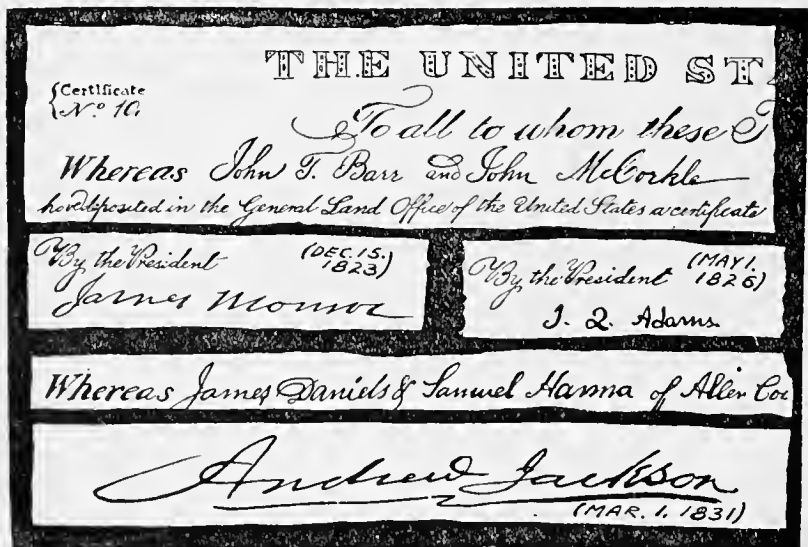 THE UNITED ST
Certificate
No. 10.
To all to whom these
Whereas John T. Barr and John McCorkle
have deposited in the General Land Office of the United States a certificate
By the President (DEC. 15. 1823)
James Monroe
By the President (MAY 1. 1826)
J. Q. Adams
Whereas James Daniels & Samuel Hanna of Allen Cou
Andrew Jackson
(MAR. 1. 1831)